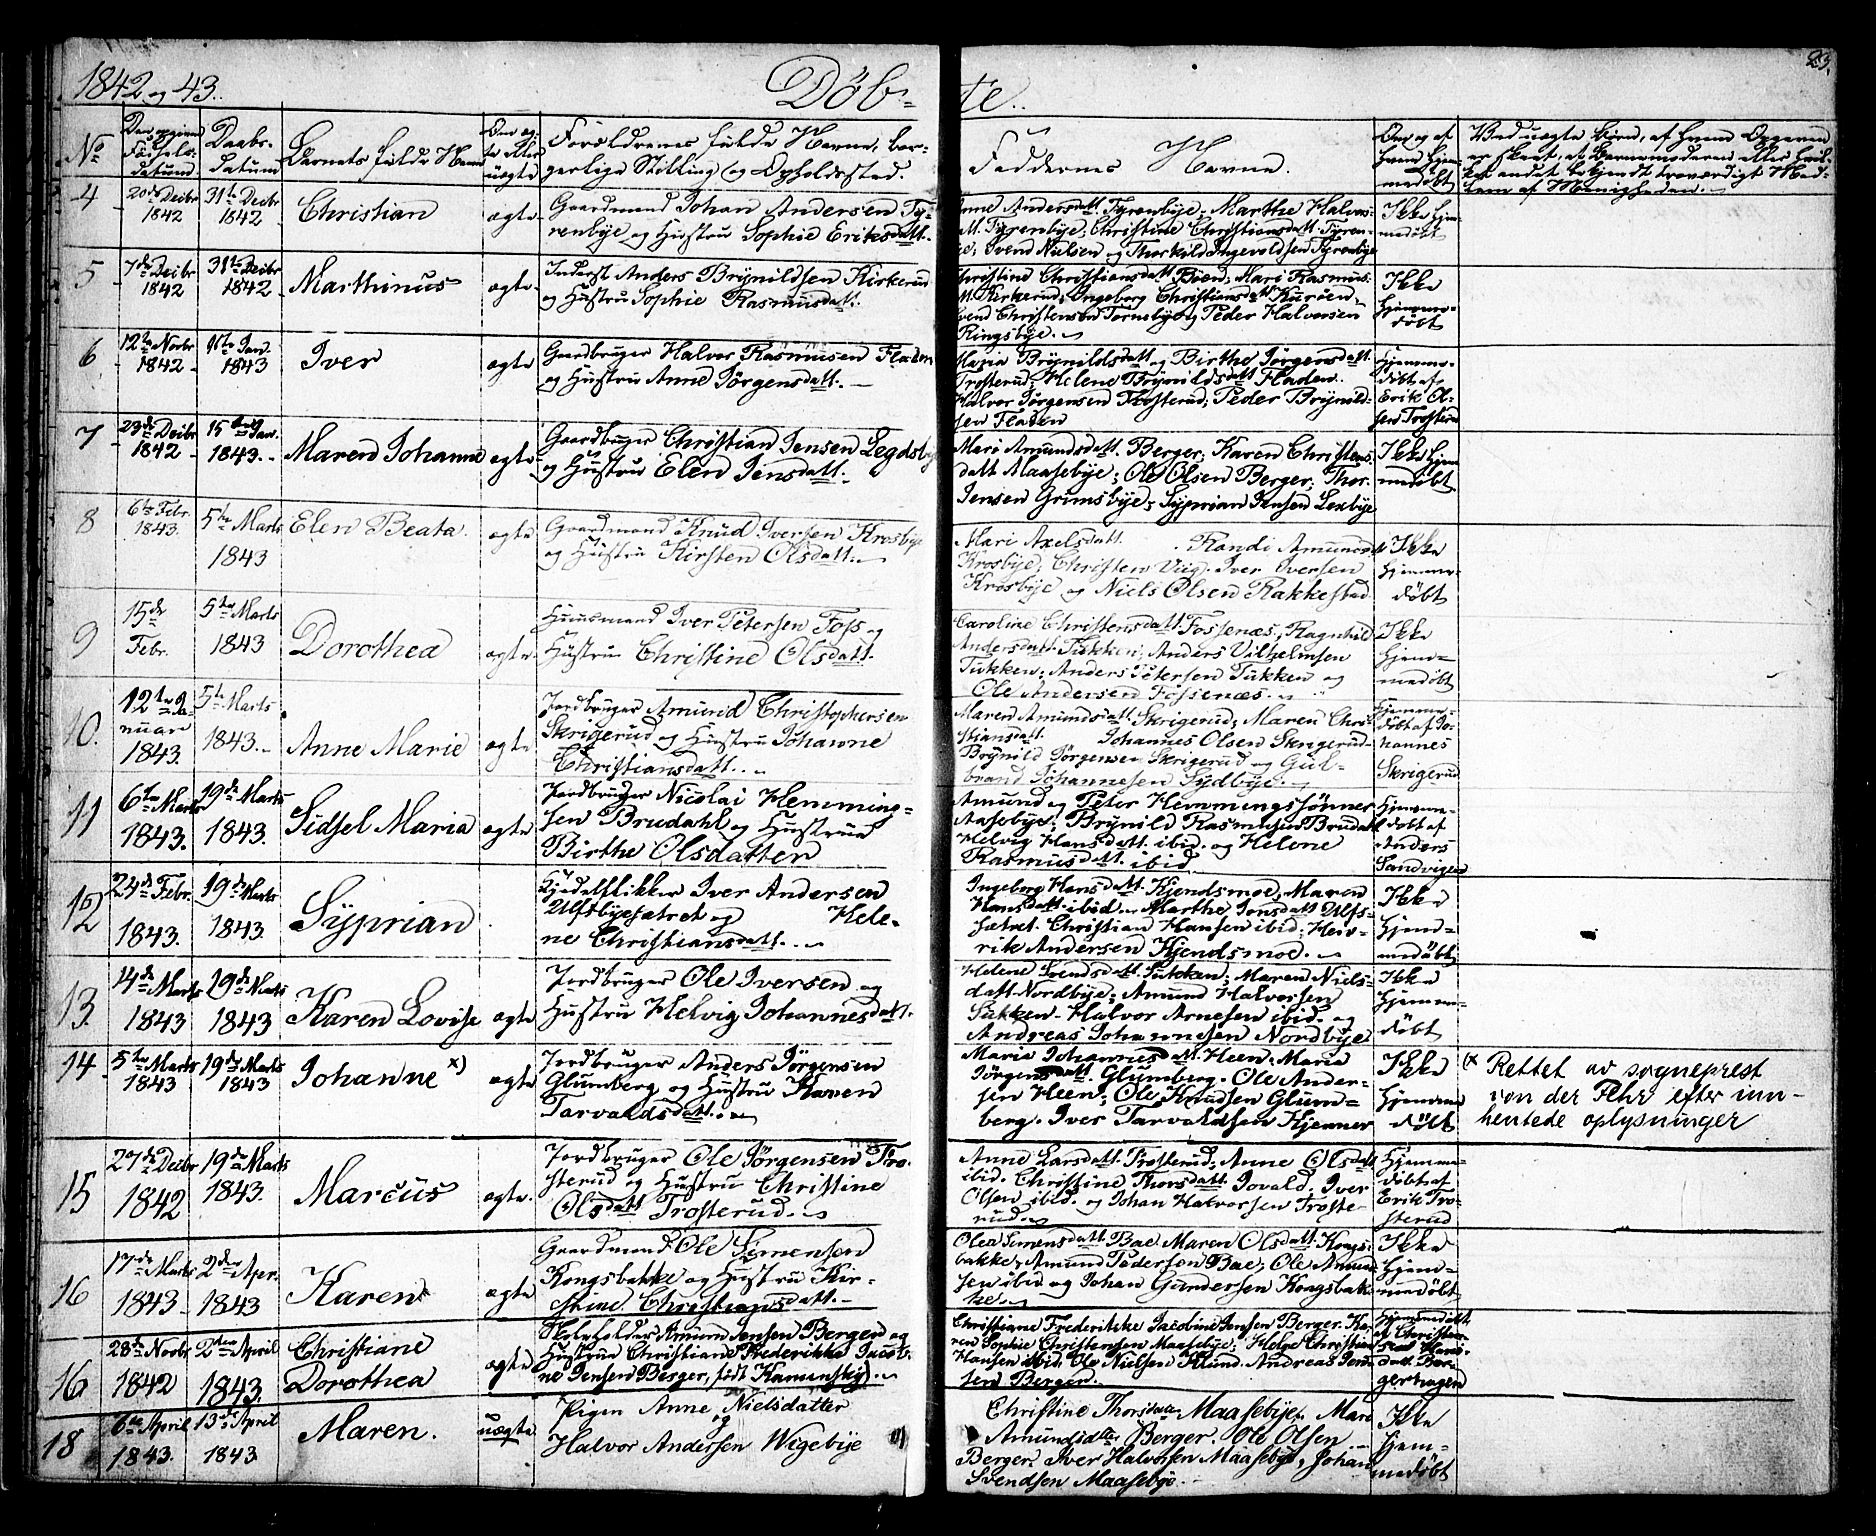 1842 og 43.
Døb-
te.
23.
No
Den opgivne
Fødsels-
datum
Daabs-
datum
Barnets fulde Navn
Om æg-
te eller
uægte
Forældrenes fulde Navne, bor-
gerlige Stilling og Opholdssted.
Faddernes Navne.
Om og af
hvem hjem-
medöbt
Ved uægte Børn, af hvem Opgaven
er skeet, af Barnemoderen eller hvil-
ket andet bekjendt troværdigt Med-
lem af Menigheden.
4
20de Decbr
1842
31te Decbr
1842
Christian
ægte
Gaardmand Johan Andersen Ty-
renbye og Hustru Sophie Eriksdatt.
Anne Andersdatt. Tyrenbye, Marthe Halvors-
datt. Tyrenbye, Christine Christiansdatt. Tyren-
bye, Svend Nielsen og Thorkild Ingevoldsen Tyrenbye
Ikke hjem-
medöbt
5
7de Decbr
1842
31te Decbr
1842
Marthinus
ægte
Inderst Anders Brynildsen Kirkerud
og Hustru Sophie Rasmusdatt.
Christine Christiansdatt. Böen, Mari Rasmus-
datt. Kirkerud, Ingeborg Christiansdatt.
Svend Christensen Tornsbye og Peder Halvorsen
Ringsbye.
Ikke
hjemme-
döbt
6
12te Novbr
1842
Jan.
1843
Iver
ægte
Gaardbruger Halvor Rasmusen Fladen
og Hustru Anne Jørgensdatt.
Maria Brynildsdatt. Birthe Jørgensdatt.
Trosterud, Helene Brynildsdatt Fladen.
Halvor Jørgensen Trosterud, Peder Brynild-
sen Fladen
Hjemme-
döbt af
Erik Ol-
sen Trosterud
7
23de Decbr
1842
15 Jan.
1843.
Maren Johanne
ægte
Gaardbruger Christian Jensen Legdsby
og Hustru Elen Jensdatt.
Mari Amundsdatt. Berger, Karen Christens-
datt Maasebye, Ole Olsen Berger, Thor
Jensen Grimsbye, Syprian Jensen Lexbye
Ikke hjem
medöbt
8
6te Febr
1843.
5te Marts
1843
Elen Beata
ægte
Gaardmand Knud Iversen Krosbye
og Hustru Kirsten Olsdatt.
Mari Axelsdatt. Randi Amundsd
Krosbye, Christen Viig. Iver Iversen
Krosbye og Niels Olsen Rakkestad
Ikke
hjemme-
döbt
9
15de
Febr.
5te Marts
1843
Dorothea
ægte
Huusmand Iver Petersen Foss og
Hustru Christine Olsdatt.
Caroline Christensdatt. Fossenæs, Ragnhild
Andersdatt. Tukken, Anders Vilhelmsen
Tukken, Anders Petersen Tukken og
Ole Andersen Fossenæs.
Ikke
hjem-
medöbt
10.
12te Ja-
nuar
1843.
5te Marts
1843.
Anne Marie
ægte
Jordbruger Amund Christophersen
Skrigerud og Hustru Johanne
Christiansdatt.
Maren Amundsdatt. Skrigerud, Maren Chri-
stiansdatt. Johannes Olsen Skrigerud-
Brynild Jørgensen Skrigerud og Gul-
brand Johannesen Sydbye.
Hjemme-
döbt af Jo-
hannes
Skrigerud
11
6te Marts
1843.
19de Marts
1843.
Sidsel Maria
ægte
Jordbruger Nicolai Hemming-
sen Brudahl og Hustrue
Birthe Olsdatter
Amund og Peter Hemmingssønner
Aasebye, Brynild Rasmusen Brudahl
Helvig Hansdatt. ibid. og Helene
Rasmusdatt. ibid
Hjemme-
döbt af
Anders
Sandvigen
12
24de Febr.
1843.
19de Marts
1843.
Syprian
Kjedelflikker Iver Andersen
Ulfsbyesætret og Hele-
ne Christiansdatt.
Ingeborg Hansdatt. Kjendsmoe, Maren
Hansdatt. ibid. Marthe Jonsdatt. Ulfs-
sætret. Christian Hansen ibid, Hen-
rik Andersen Kjendsmoe.
Ikke
hjem-
medöbt
13.
4de Marts
1843
19de Marts
1843
Karen Lovise
ægte
Jordbruger Ole Iversen og
Hustru Helvig Johannesdatt.
Helene Svendsdatt. Tukken, Maren Niels-
datt. Nordbye, Amund Halvorsen
Tukken- Halvor Arnesen ibid. og
Andreas Johannesen Nordbye
Ikke
hjemme-
döbt
14
5te Marts
1843
19de Marts
1843
Johanne x)
ægte
Jordbruger Anders Jørgensen
Glumberg og Hustru Karen
Tarvaldsdatt.
Maria Johannesdatt. Heen. Maria
Jørgensdatt. Glumberg. Ole Ander-
sen Heen, Ole Knudsen Glum-
berg. Iver Tarvaldsen Hjenner
Ikke
hjemme
döbt
(x Rettet av sogneprest
von der Fehr efter inn-
hentede oplysninger
15
27de Decbr
1842
19de Marts
1843.
Marcus
ægte.
Jordbruger Ole Jørgensen Tro-
sterud og Hustru Christine
Olsdatt Trosterud.
Anne Larsdatt. Trosterud, Anne Olsdatt
ibid. Christine Thorsdatt. Jovald. Iver
Olsen ibid. og Johan Halvorsen Troste-
rud.
Hjemme-
döbt af
Erik Tro-
sterud
16
17de Marts
1843
2den Apr.
1843
Karen
ægte
Gaardmand Ole Simensen
Kongsbakke og Hustru Kir-
stine Christiansdatt.
Olea Simensdatt. Bae Maren Olsdatt. Kongs-
bakke, Amund Pedersen Bae, Ole Amund
sen ibid og Johan Gundersen Kongsbak-
ke.
Ikke
hjem-
medöbt
16
28de Novbr
1842
2den April
1843.
Christiane
Dorothea
ægte
Skoleholder Amund Jensen Bergen og
Hustrue Christiane Frederikke Jacobi-
ne Jensen Berger, født Kamunsky).
Christiane Frederikke Jacobine Jensen Berger. Ka-
ren Sophie Christensen Maasebye, Helge Christian
Hansen ibid. Ole Nielsen Klund. Andreas Jen-
sen Berger.
Hjemmedöbt
af Christine
Hans-
datt. Ber-
gerhagen
18
6te April
1843.
13de April
1843
Maren.
uægte
Pigen Anne Nielsdatter
og
Halvor Andersen Wigebye
Christine Thorsdatter Maasebye, Mari
Amundsdtter Berger. Ole Olsen
Berger, Iver Halvorsen Maasebye, Johan
Svendsen Maasebye.
Ikke
hjem-
medöbt